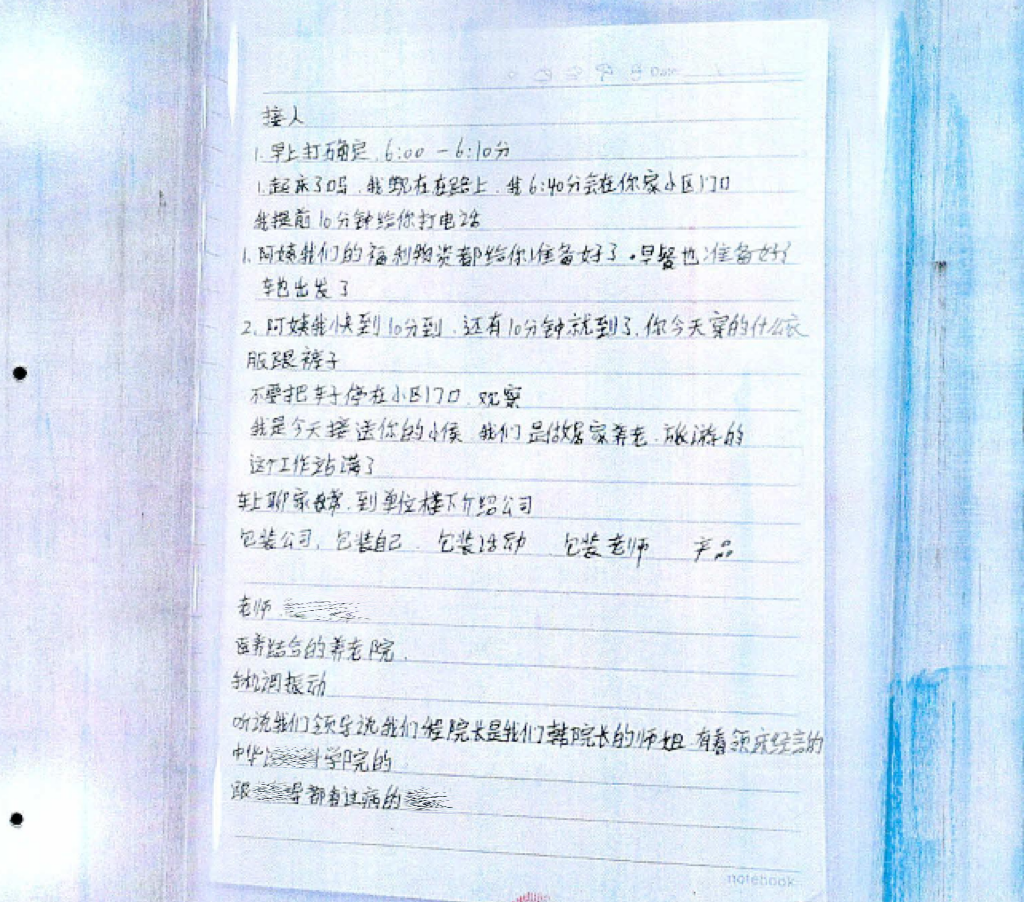 Date
接人
1. 早上打确定. 6:00 — 6:10分
1. 起床了吗. 我现在在路上. 我6:40分会在你家小区门口
我提前10分钟给你打电话
1. 阿姨我们的福利物资都给你准备好了. 早餐也准备好了
车也出发了
2. 阿姨我快到10分到. 还有10分钟就到了. 你今天穿的什么衣
服跟裤子
不要把车子停在小区门口. 观察
我是今天接送你的小侯. 我们是做居家养老. 旅游的
这个工作站满了
车上聊家常. 到单位楼下介绍公司
包装公司. 包装自己. 包装活动 包装老师 产品
老师
医养结合的养老院.
手机调振动
听说我们领导说我们程院长是我们韩院长的师姐 有着临床经验的
中华 学院的
跟 导都看过病的
notebook